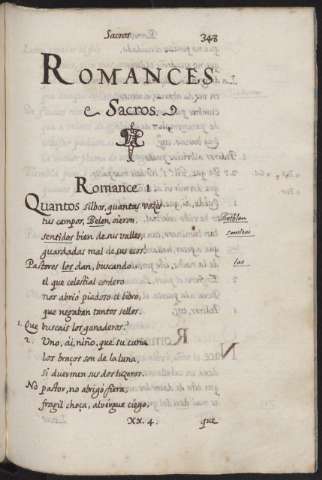 Sacros
348
ROMANCES
Sacros.
Romance 1
Quantos silbos, quantas voces
tus campos, Belen, oieron,
sentidos bien de sus valles,
guardadas mal de sus ecos!
Pastores los dan, buscando
el que celestial cordero
nos abrio piadoso el libro,
que negaban tantos sellos.
1. Que buscais los ganaderos?
2. Uno, ai, niño, que su cuna
los braços son de la luna,
si duermen sus dos luzeros.
No pastor, no abrigò fiera
fragil choça, alvergue ciego,
XX. 4. que